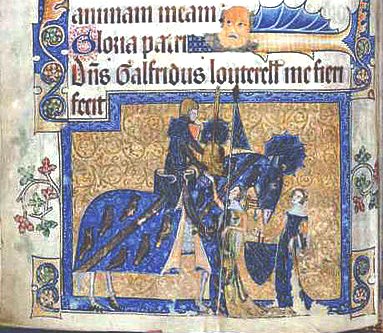 animam meam
Gloria patri
Dns Galfridus louterell me fieri
fecit